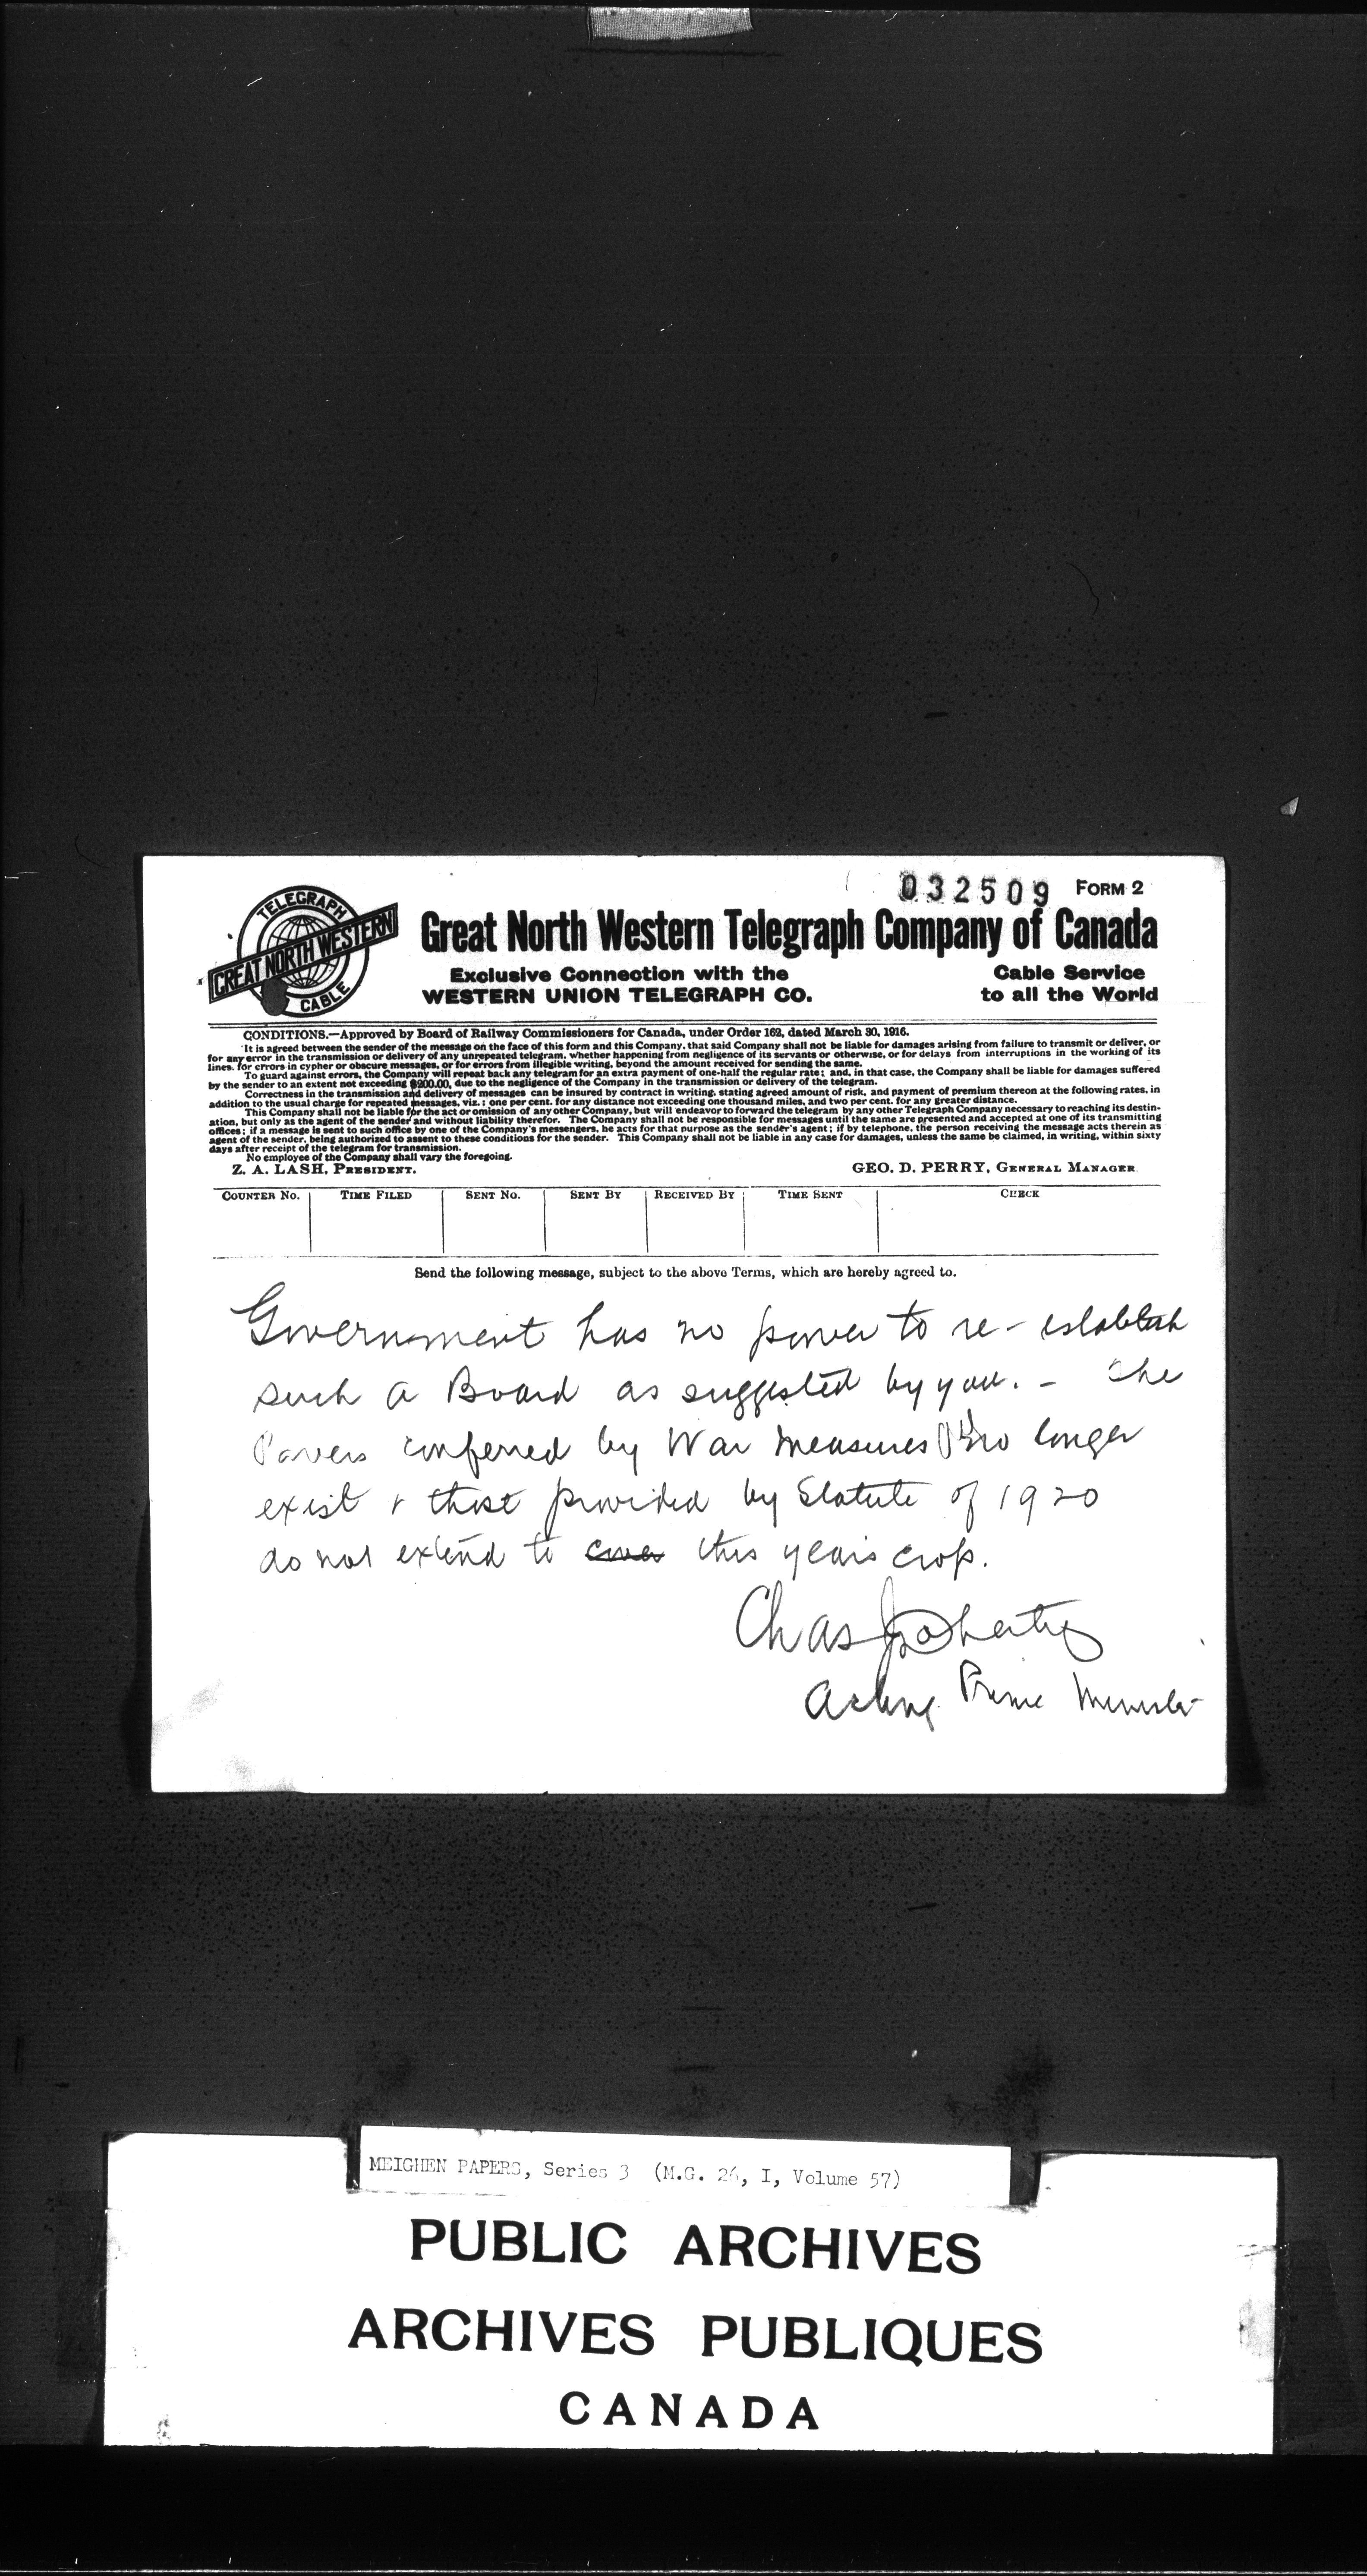 032509 FORM 2
TELEGRAPH
GREAT NORTH WESTERN
CABLE
Great North Western Telegraph Company of Canada
Exclusive Connection with the
WESTERN UNION TELEGRAPH CO.
Cable Service
to all the World
CONDITIONS.—Approved by Board of Railway Commissioners for Canada, under Order 162, dated March 30, 1916.
It is agreed between the sender of the message on the face of this form and this Company, that said Company shall not be liable for damages arising from failure to transmit or deliver, or
for any error in the transmission or delivery of any unrepeated telegram, whether happening from negligence of its servants or otherwise, or for delays from interruptions in the working of its
lines, for errors in cypher or obscure messages, or for errors from illegible writing, beyond the amount received for sending the same.
To guard against errors, the Company will repeat back any telegram for an extra payment of one-half the regular rate; and, in that case, the Company shall be liable for damages suffered
by the sender to an extent not exceeding $200.00, due to the negligence of the Company in the transmission or delivery of the telegram.
Correctness in the transmission and delivery of messages can be insured by contract in writing, stating agreed amount of risk, and payment of premium thereon at the following rates, in
addition to the usual charge for repeated messages, viz.: one per cent. for any distance not exceeding one thousand miles, and two per cent. for any greater distance.
This Company shall not be liable for the act or omission of any other Company, but will endeavor to forward the telegram by any other Telegraph Company necessary to reaching its destin-
ation, but only as the agent of the sender and without liability therefor. The Company shall not be responsible for messages until the same are presented and accepted at one of its transmitting
offices; if a message is sent to such office by one of the Company's messengers, he acts for that purpose as the sender's agent; if by telephone, the person receiving the message acts therein as
agent of the sender, being authorized to assent to these conditions for the sender. This Company shall not be liable in any case for damages, unless the same be claimed, in writing, within sixty
days after receipt of the telegram for transmission.
No employee of the Company shall vary the foregoing.
Z. A. LASH, PRESIDENT.
GEO. D. PERRY, GENERAL MANAGER
COUNTER NO. TIME FILED SENT NO. SENT BY RECEIVED BY TIME SENT CHECK
Send the following message, subject to the above Terms, which are hereby agreed to.
Government has no power to re-establish
such a Board as suggested by you. - The
Powers conferred by War Measures no longer
exist & those provided by Statute of 1920
do not extend to cover this years crop.
Chas J Doherty
Acting Prime Minister
MEIGHEN PAPERS, Series 3 (M.G. 26, I, Volume 57)
PUBLIC ARCHIVES
ARCHIVES PUBLIQUES
CANADA